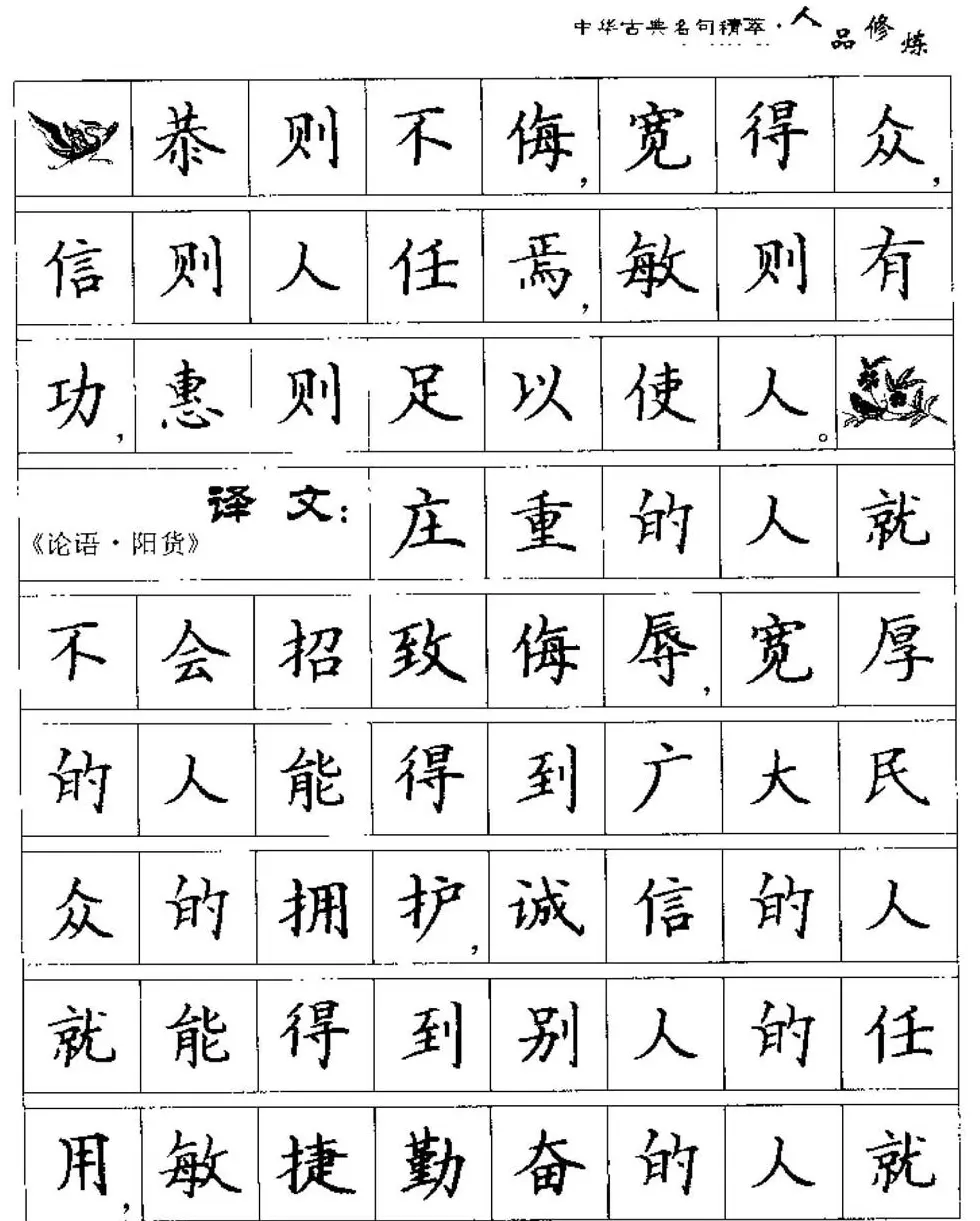 中华古典名句精萃·人品修炼
恭则不侮,宽得众,
信则人任焉,敏则有
功,惠则足以使人。
译文:庄重的人就
《论语·阳货》
不会招致侮辱,宽厚
的人能得到广大民
众的拥护,诚信的人
就能得到别人的任
用,敏捷勤奋的人就